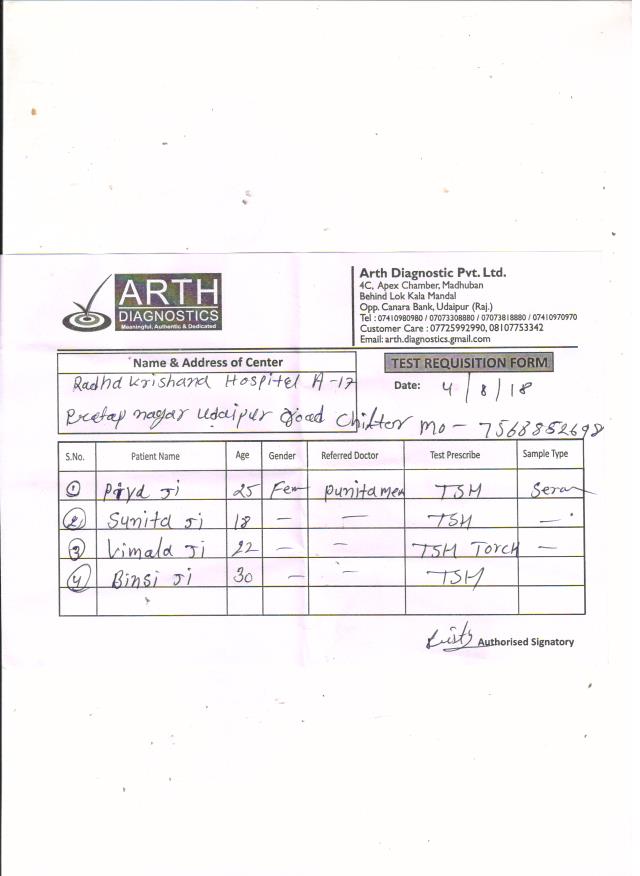 ARTH
DIAGNOSTICS
Meaningful, Authentic & Dedicated
Arth Diagnostic Pvt. Ltd.
4C, Apex Chamber, Madhuban
Behind Lok Kala Mandal
Opp. Canara Bank, Udaipur (Raj.)
Tel : 07410980980 / 07073308880 / 07073818880 / 07410970970
Customer Care : 07725992990, 08107753342
Email: arth.diagnostics.gmail.com
Name & Address of Center
TEST REQUISITION FORM
Radha Krishana Hospitel A-17
Date: 4/8/18
Pratap nagar Udaipur Road Chittor mo - 7568852698
S.No. Patient Name Age Gender Referred Doctor Test Prescribe Sample Type
1 Priya Ji 25 Fem punita mem TSH
2 Sunita Ji 18 - - TSH -
3 Vimala Ji 22 - - TSH Torch -
4 Binsi Ji 30 - - TSH
Authorised Signatory